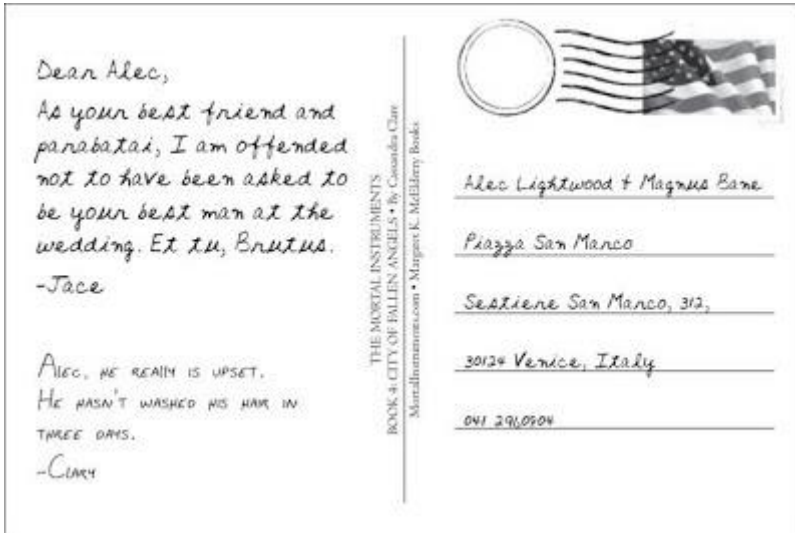 Dear Alec,
As your best friend and
parabatai, I am offended
not to have been asked to
be your best man at the
wedding. Et tu, Brutus.
-Jace
Alec, he really is upset.
He hasn't washed his hair in
three days.
-Clary
THE MORTAL INSTRUMENTS
BOOK 4: CITY OF FALLEN ANGELS • By Cassandra Clare
MortalInstruments.com • Margaret K. McElderry Books
Alec Lightwood + Magnus Bane
Piazza San Marco
Sestiere San Marco, 312,
30124 Venice, Italy
041 2960704